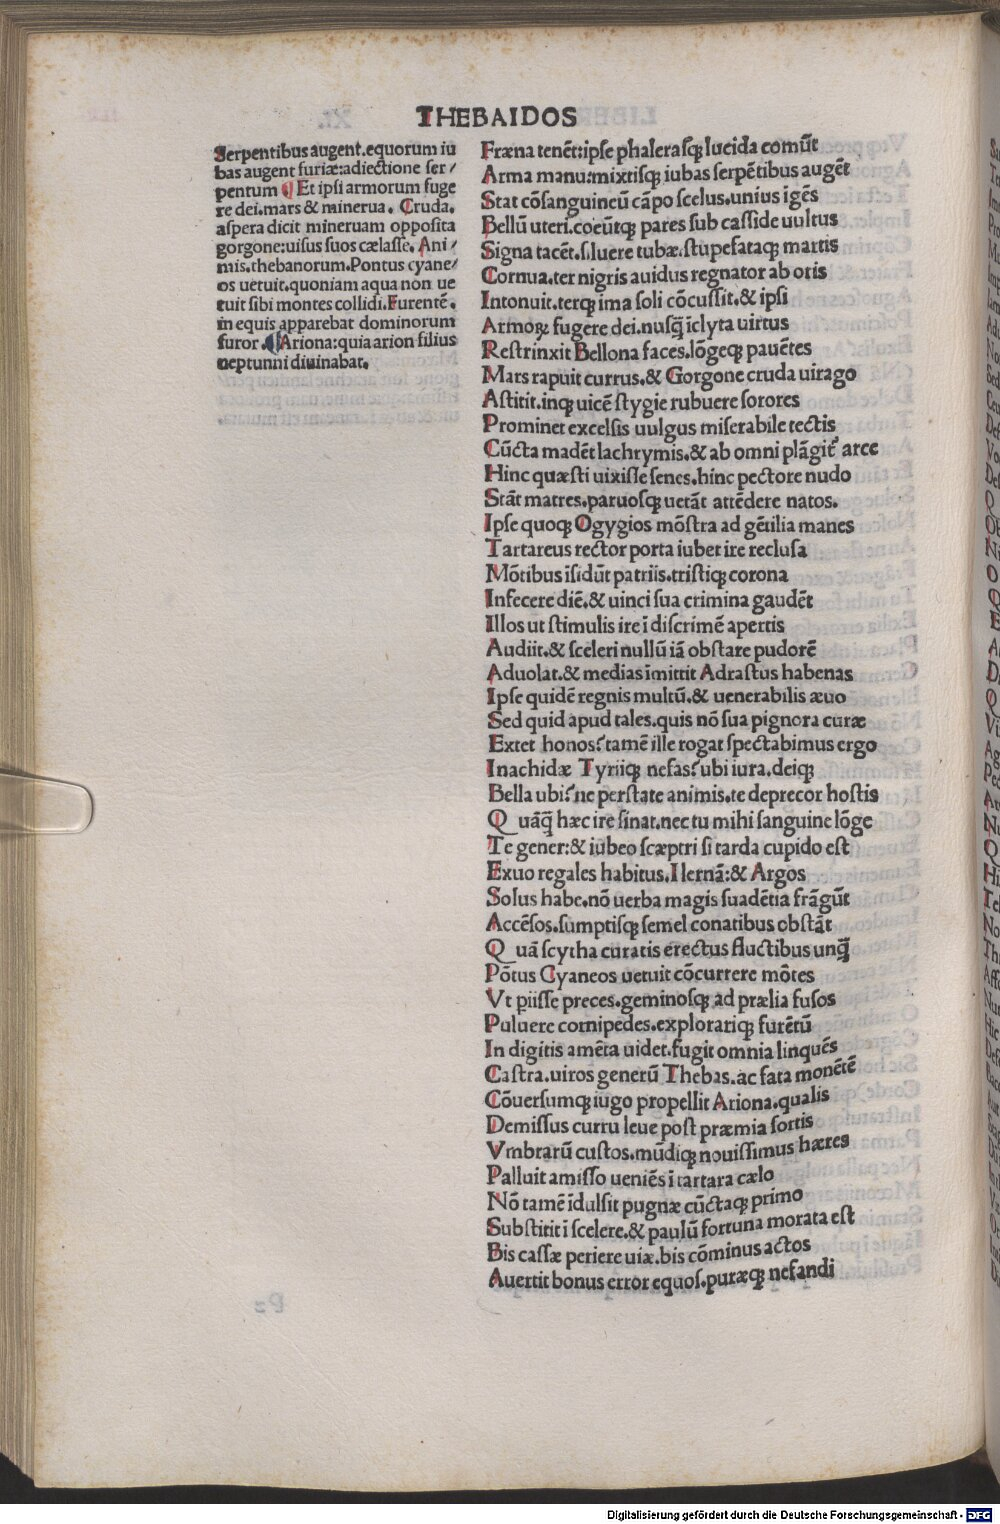 THEBAIDOS
Serpentibus augent.equorum iu
bas augent furiæ:adiectione ser/
pentum ¶ Et ipsi armorum fuge
re dei.mars & minerua. Cruda.
aspera dicit mineruam opposita
gorgone:uisus suos cælasse. Ani/
mis.thebanorum.Pontus cyane/
os uetuit.quoniam aqua non ue
tuit sibi montes collidi.Furentē.
in equis apparebat dominorum
furor.¶ Ariona:quia arion filius
neptunni diuinabat.
Fræna tenēt:ipse phalerasq; lucida comūt
Arma manu:mixtisq; iubas serpētibus augēt
Stat cōsanguineū cāpo scelus.unius īgēs
Bellū uteri.coeūtq; pares sub casside uultus
Signa tacēt.siluere tubæ.stupefataq; martis
Cornua.ter nigris auidus regnator ab oris
Intonuit.terq; ima soli cōcussit.& ipsi
Armoꝝ fugere dei.nusq̄ īclyta uirtus
Restrinxit Bellona faces.lōgeq; pauētes
Mars rapuit currus.& Gorgone cruda uirago
Astitit.inq; uicē stygie rubuere sorores
Prominet excelsis uulgus miserabile tectis
Cūcta madēt lachrymis.& ab omni plāgit᷑ arce
Hinc quæsti uixisse senes.hinc pectore nudo
Stāt matres.paruosq; uetāt attēdere natos.
Ipse quoq; Ogygios mōstra ad gētilia manes
Tartareus rector porta iubet ire reclusa
Mōtibus īsidūt patriis.tristiq; corona
Infecere diē.& uinci sua crimina gaudēt
Illos ut stimulis ire ī discrimē apertis
Audiit.& sceleri nullū iā obstare pudorē
Aduolat.& medias īmittit Adrastus habenas
Ipse quidē regnis multū.& uenerabilis æuo
Sed quid apud tales.quis nō sua pignora curæ
Extet honos?tamē ille rogat spectabimus ergo
Inachidæ Tyriiq; nefas?ubi iura.deiq;
Bella ubi?ne perstate animis.te deprecor hostis
Quāq̄ hæc ire sinat.nec tu mihi sanguine lōge
Te gener:& iubeo scæptri si tarda cupido est
Exuo regales habitus.I lernā:& Argos
Solus habe.nō uerba magis suadētia frāgūt
Accēsos.sumptisq; semel conatibus obstāt
Quā scytha curatis erectus fluctibus unq̄
Pōtus Cyaneos uetuit cōcurrere mōtes
Vt piisse preces.geminosq; ad prælia fusos
Puluere cornipedes.explorariq; furētū
In digitis amēta uidet.fugit omnia linquēs
Castra.uiros generū Thebas.ac fata monētē
Cōuersumq; iugo propellit Ariona.qualis
Demissus curru leue post præmia sortis
Vmbrarū custos.mūdiq; nouissimus hæres
Palluit amisso ueniēs ī tartara cælo
Nō tamē īdulsit pugnæ cūctaq; primo
Substitit ī scelere.& paulū fortuna morata est
Bis cassæ periere uiæ.bis cōminus actos
Auertit bonus error equos.puræq; nefandi
Digitalisierung gefördert durch die Deutsche Forschungsgemeinschaft - DFG